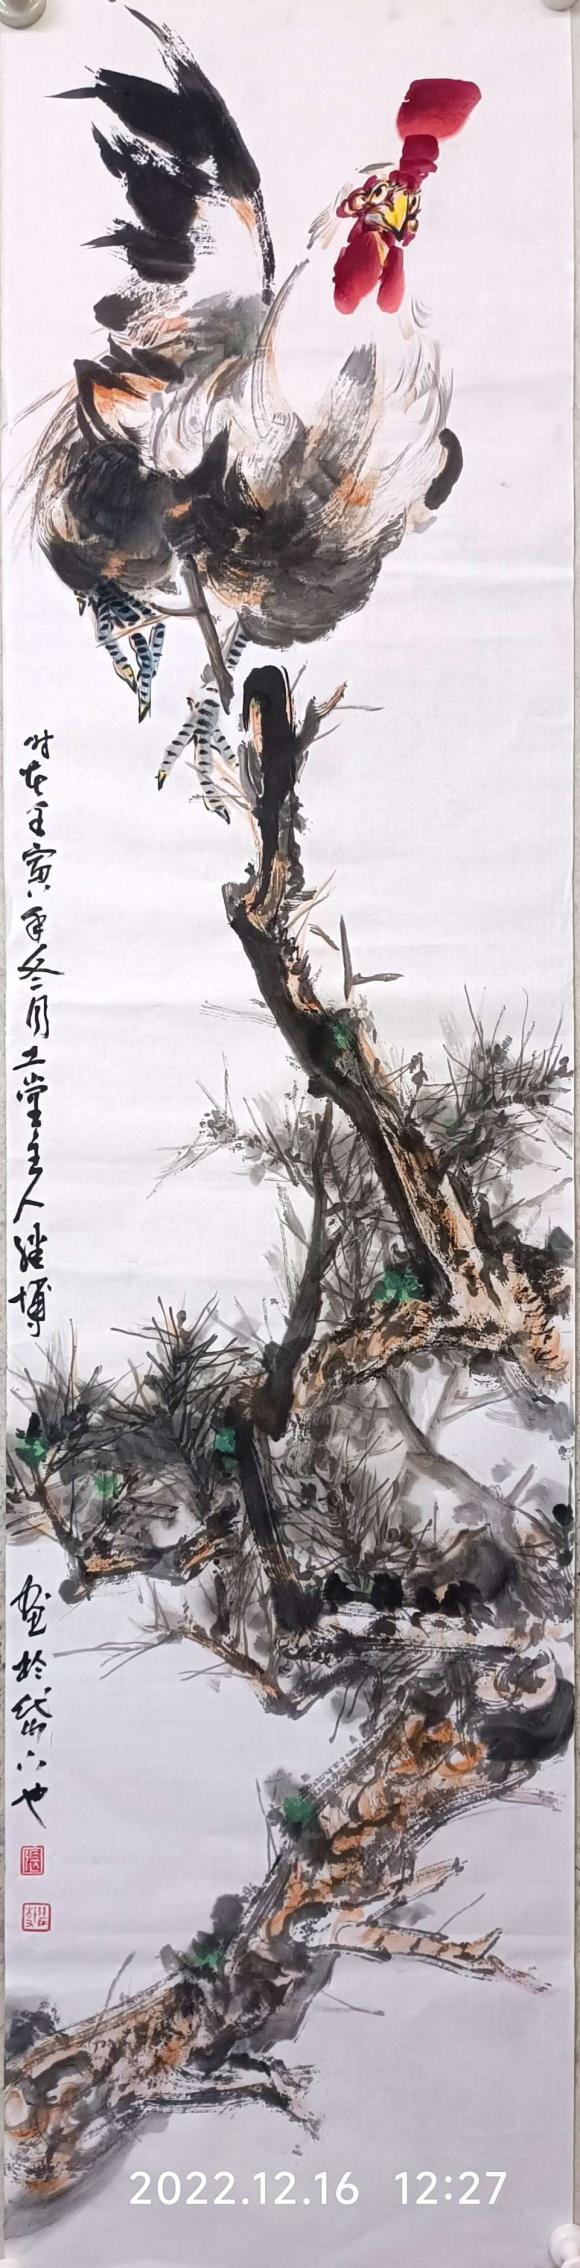 时在壬寅年冬月工堂主人继博
画於岱下也
2022.12.16 12:27